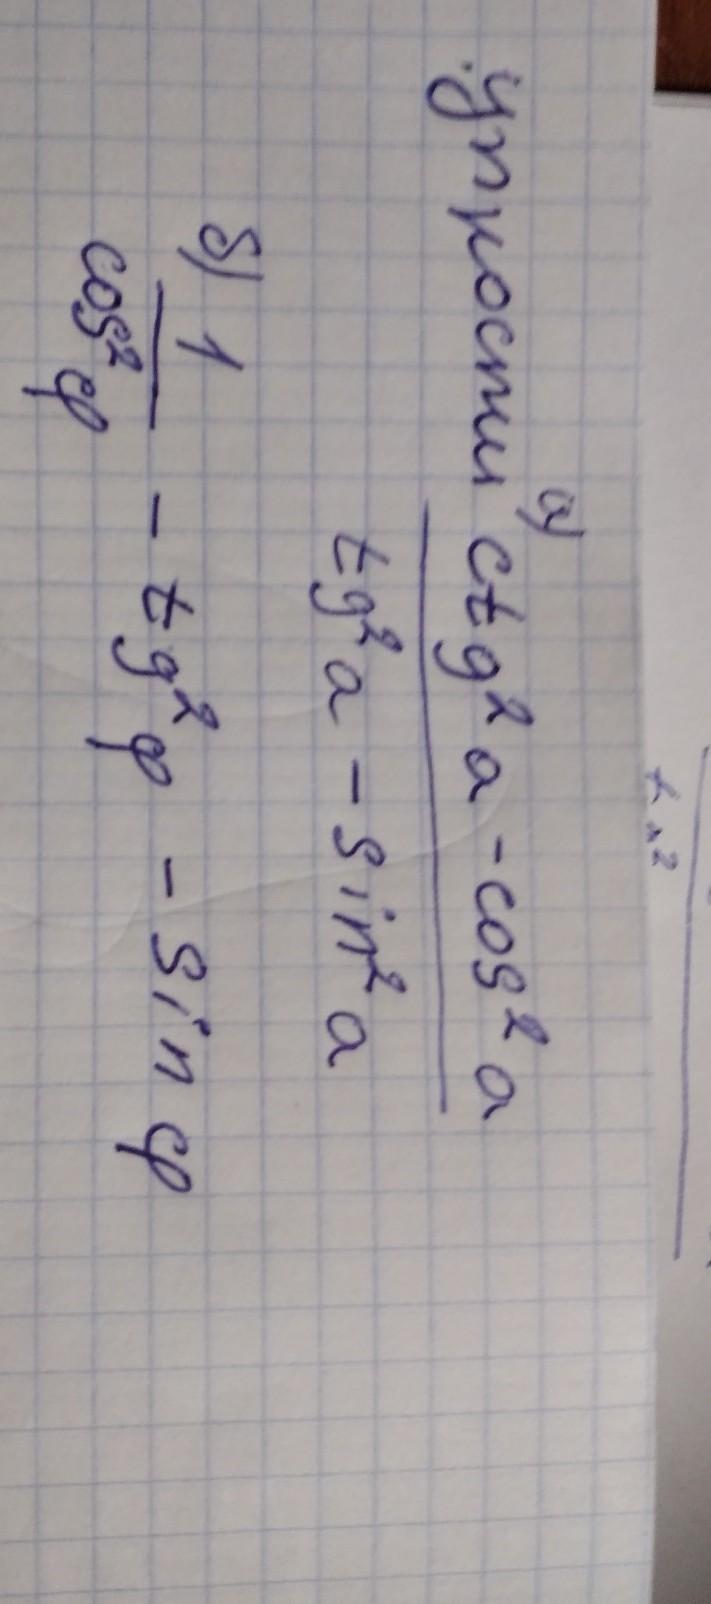 а)
упрости ctg²a - cos²a
tg²a - sin²a
б) 1
cos²φ - tg²φ - sin φ